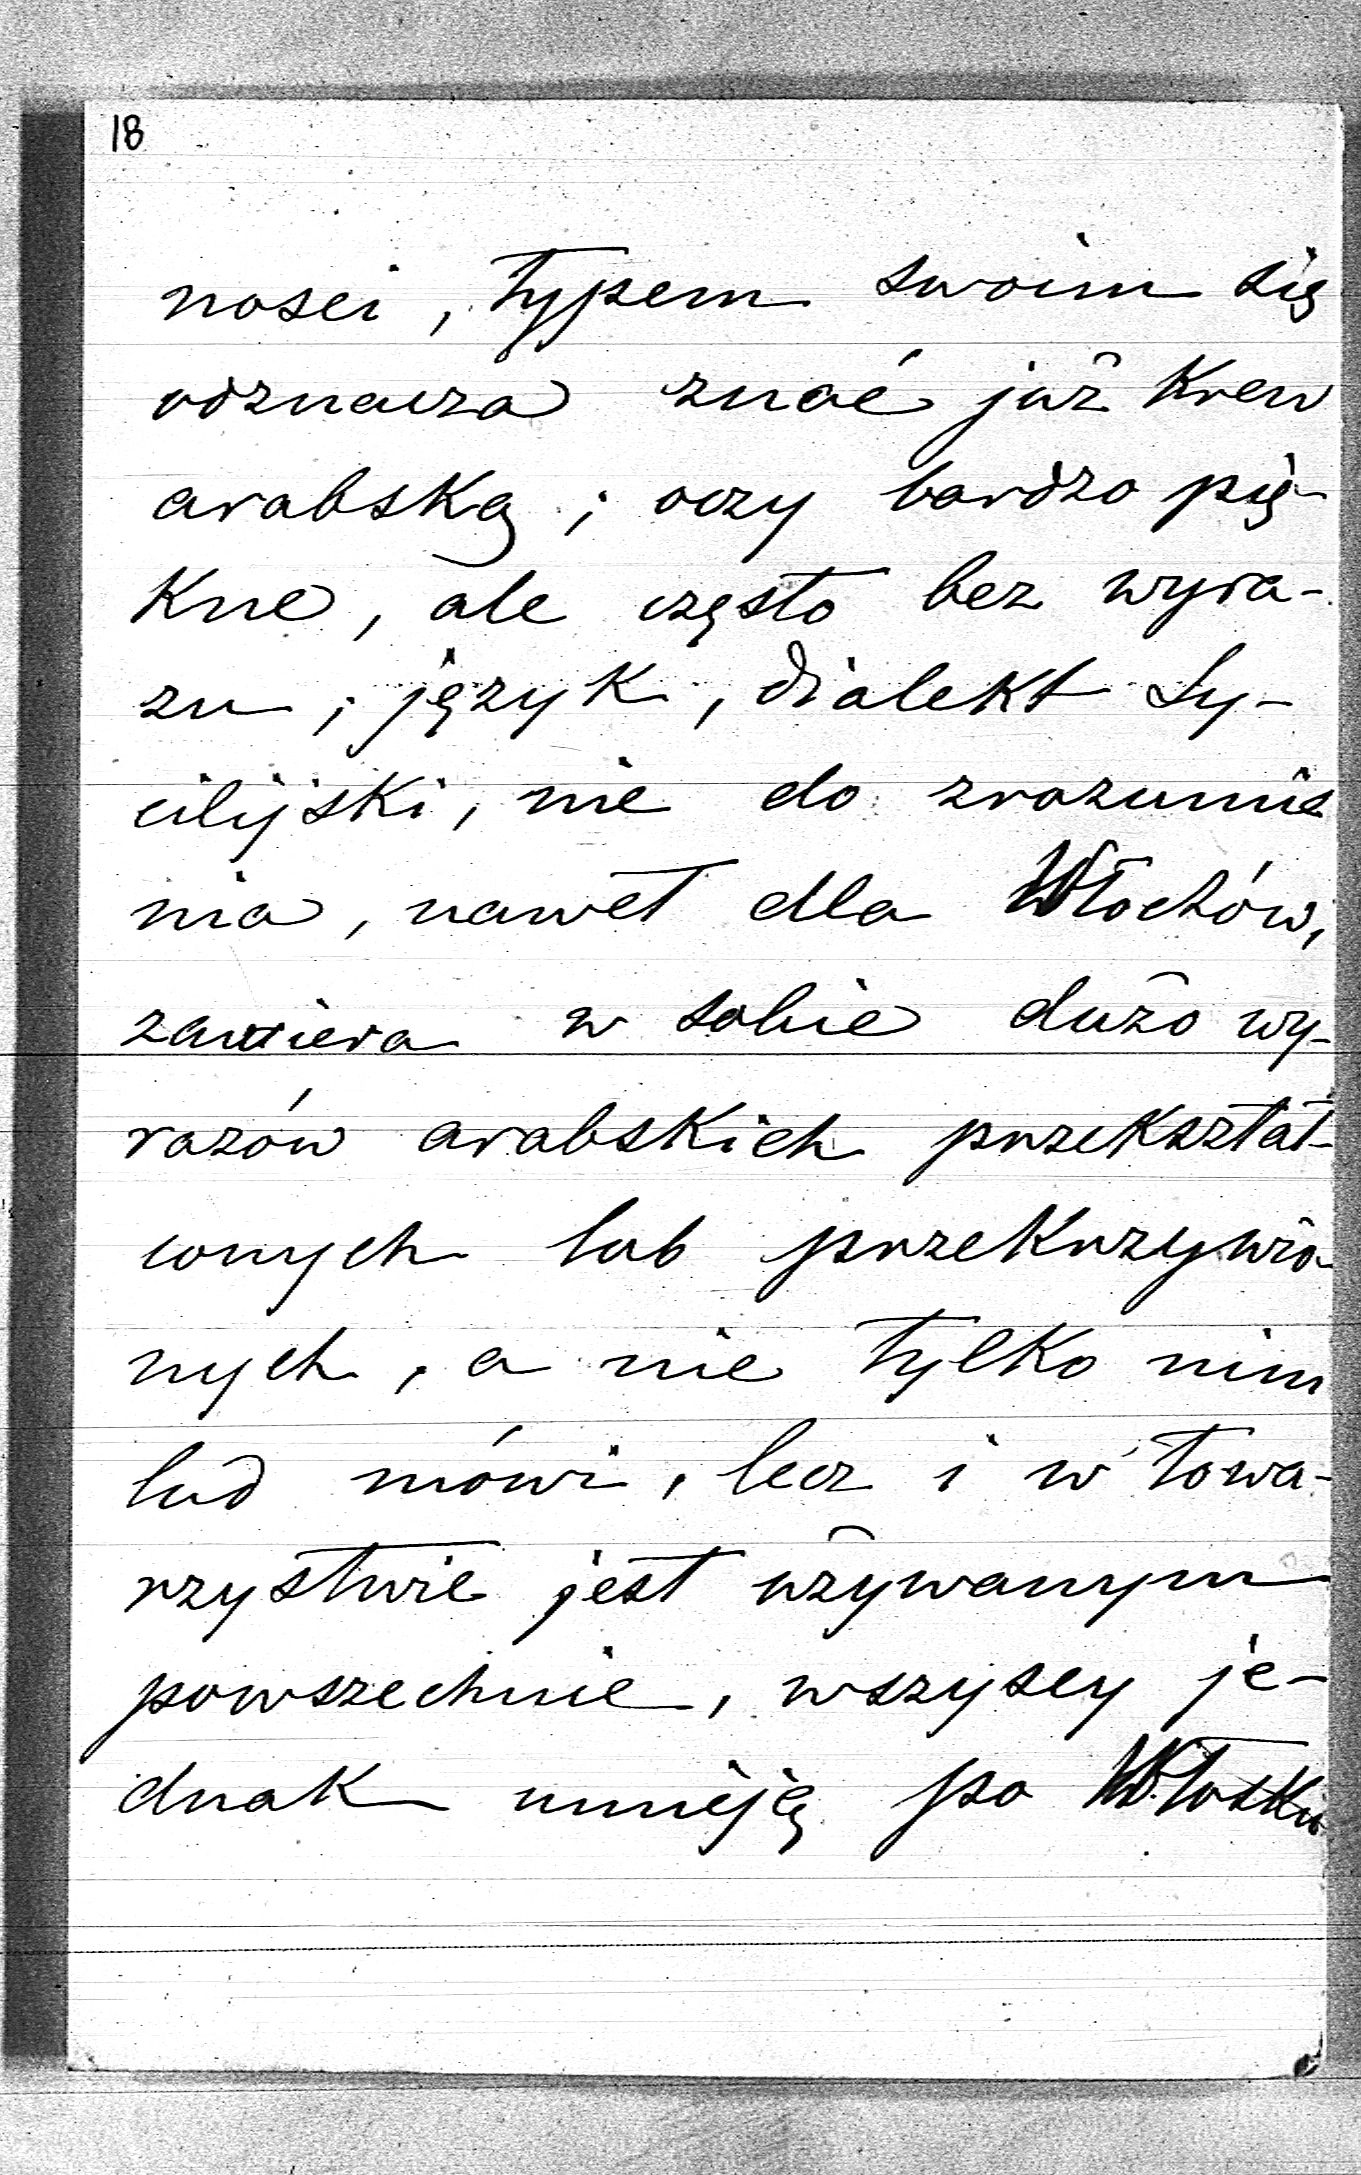 18
nosci, typem swoim się
odznacza znać już krew
arabską; oczy bardzo pię-
kne, ale często bez wyra-
zu; język, dialekt Sy-
cilijski, nie do zrozumie
nia, nawet dla Włochów,
zawiera w sobie dużo wy-
razów arabskich przekształ-
conych lub przekrzywio
nych, a nie tylko nim
lud mówi, lecz i w towa-
rzystwie jest używanym
powszechnie, wszyscy je-
dnak umieją po Włosku